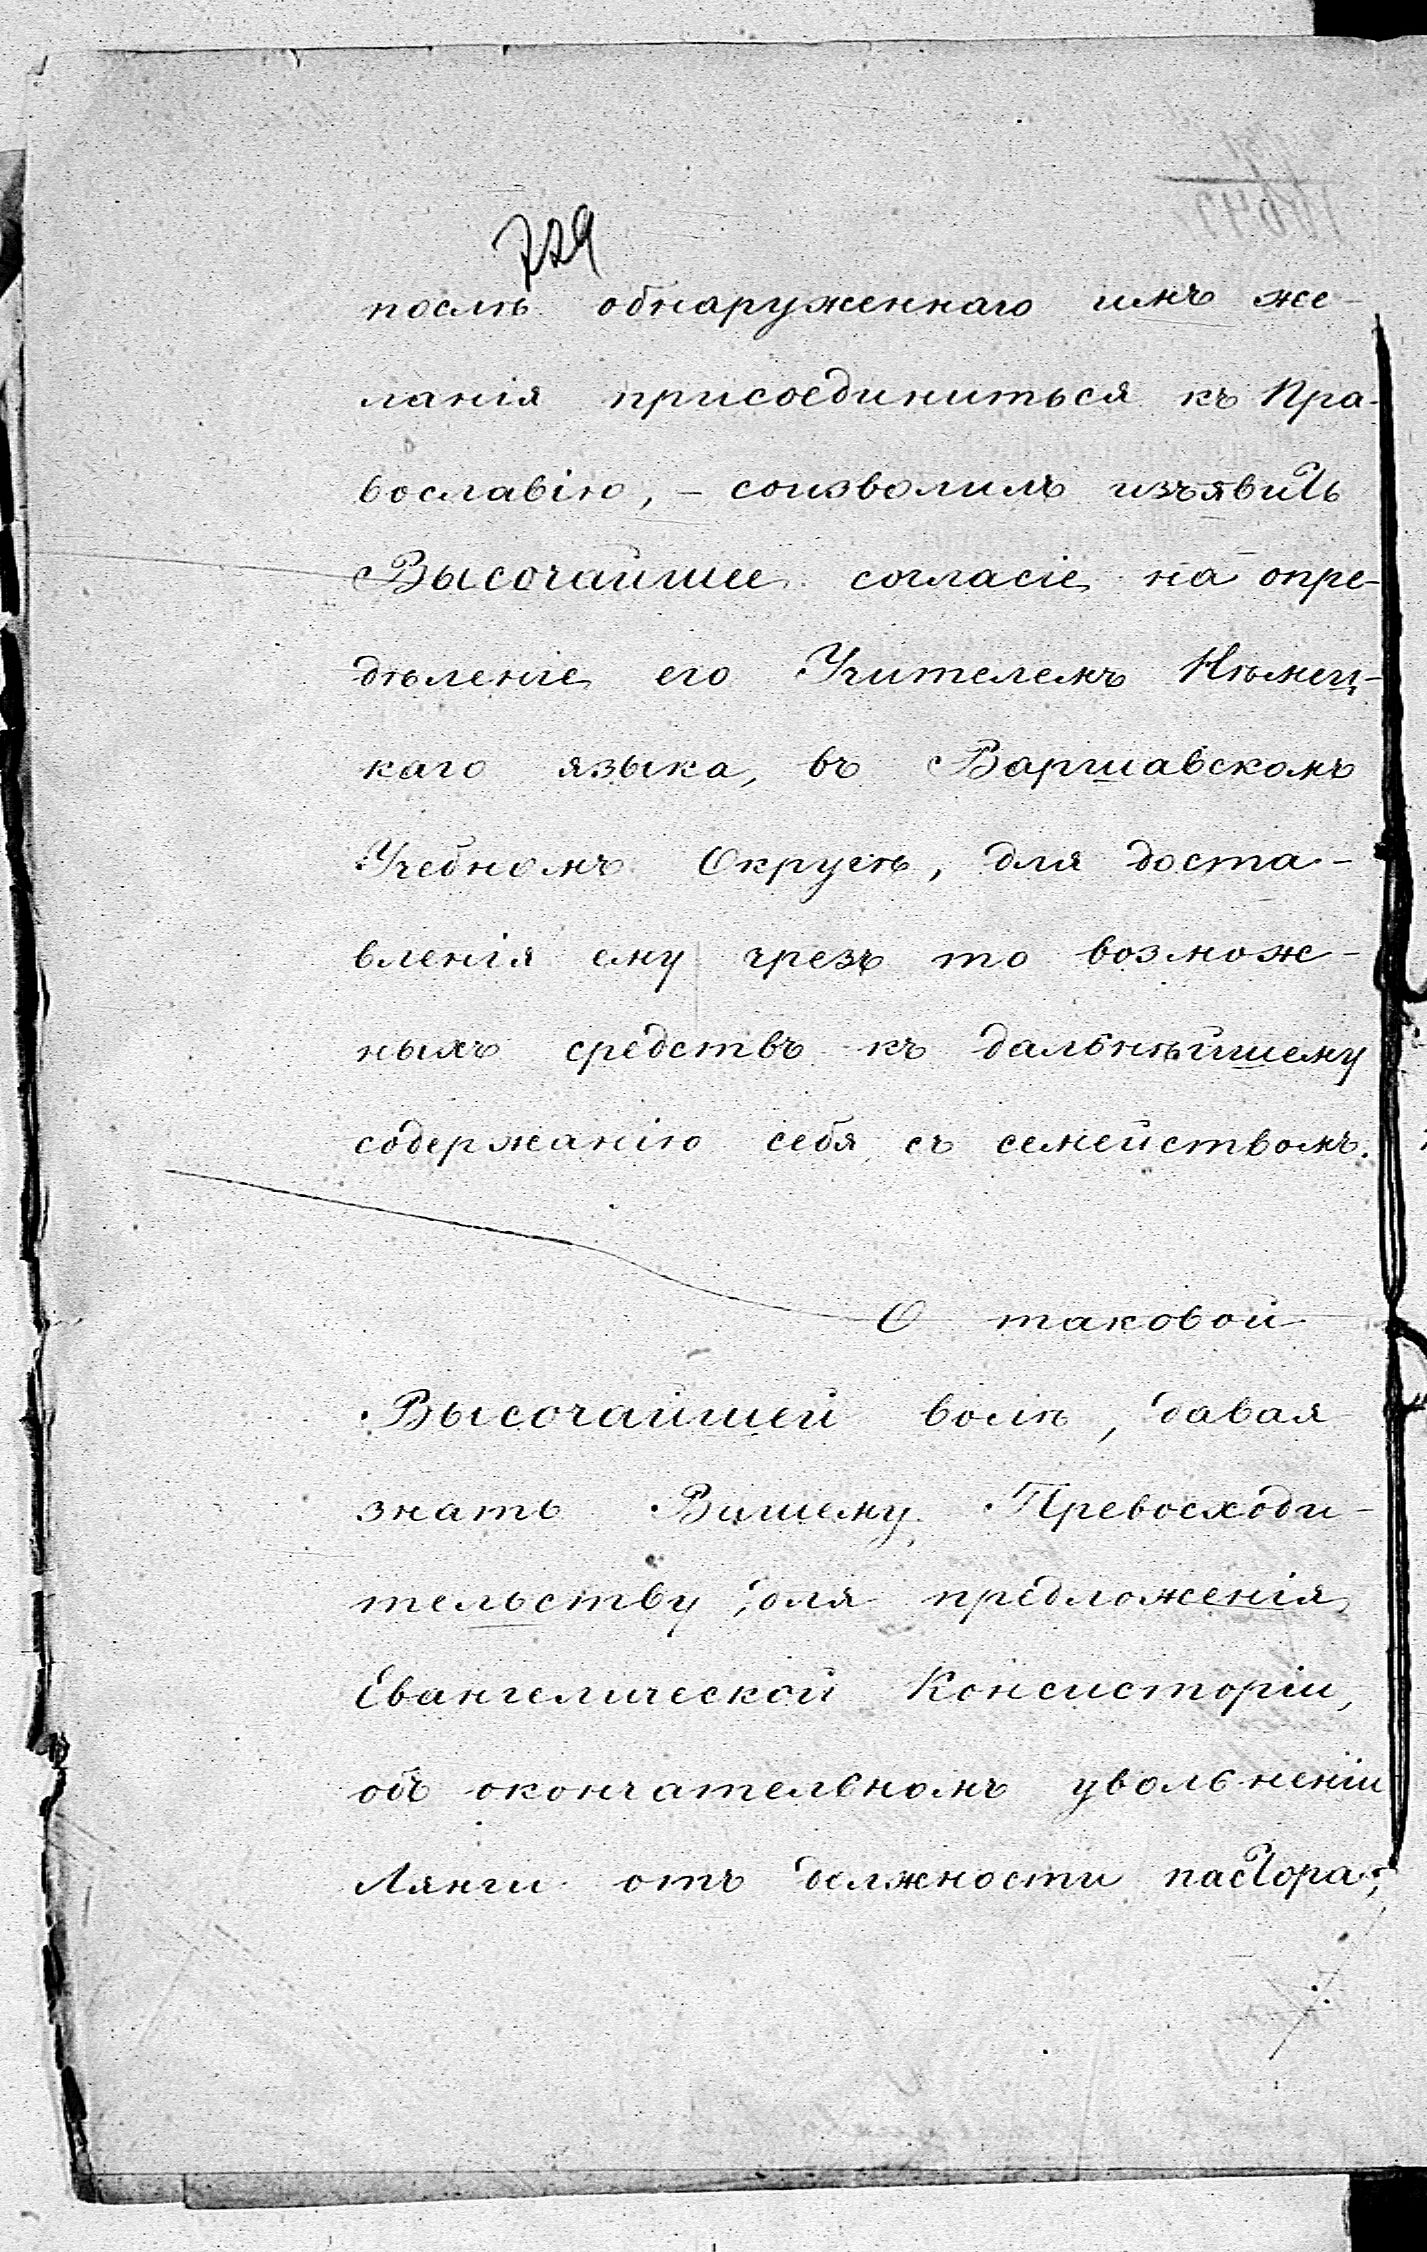 729
послѣ обнаруженнаго имъ же-
ланія присоединиться къ Пра-
вославію, – соизволилъ изъявить
Высочайшее согласіе на опре-
дѣленіе его Учителемъ Нѣмец-
каго языка, въ Варшавскомъ
Учебномъ Округѣ, для доста-
вленія ему чрезъ то возмож-
ныхъ средствъ къ дальнѣйшему
содержанію себя съ семействомъ.
О таковой
Высочайшей волѣ, давая
знать Вашему Превосходи-
тельству, для предложенія
Евангелической Консисторіи,
объ окончательномъ увольненіи
Лянги отъ должности пастора;